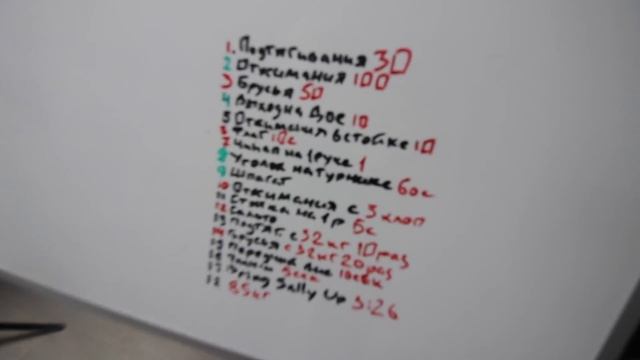 1. Подтягивания 30
2 Отжимания 100
3 Брусья 50
4 Выход на Две 10
5 Отжимания в стойке 10
6 Флаг 10с
7 на 1 руке 1
8 Уголок на турнике 60с
9 Шпагат
10 Отжимания с 3 хлоп
11 Стойка на 1р 5с
12 Сальто
13 Подтяг с 32кг 10раз
14 Брусья с 32кг 20раз
15 Передний вис 10сек
16 5сек
17 Bring Sally Up 3:26
18 85кг